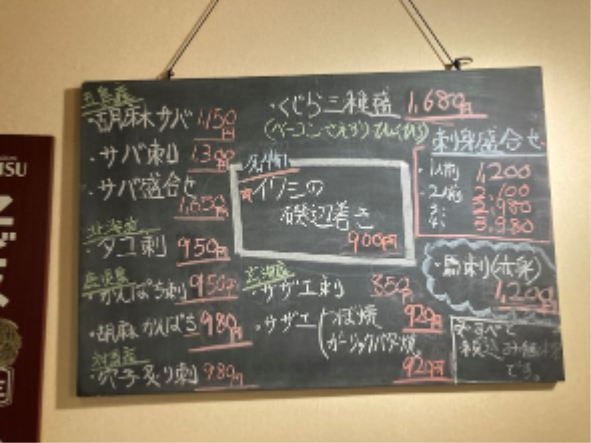 五島産
・胡麻サバ 1,150円
・サバ刺 1,300円
・サバ盛合せ
1,650円
北海道
・タコ刺 950円
・かんぱち刺 950円
・胡麻かんぱち 980円
対馬産
・穴子炙り刺 980円
・くじら三種盛 1,680円
イワシの
磯辺巻き
900円
・サザエ刺 850円
・サザエ(つぼ焼 920円
ガーリックバター焼
920円
刺身盛合せ
・1人前 1,200
・2人前
2,980
・馬刺(赤身)
1,200円
すべて
税込み価格
です。
SU